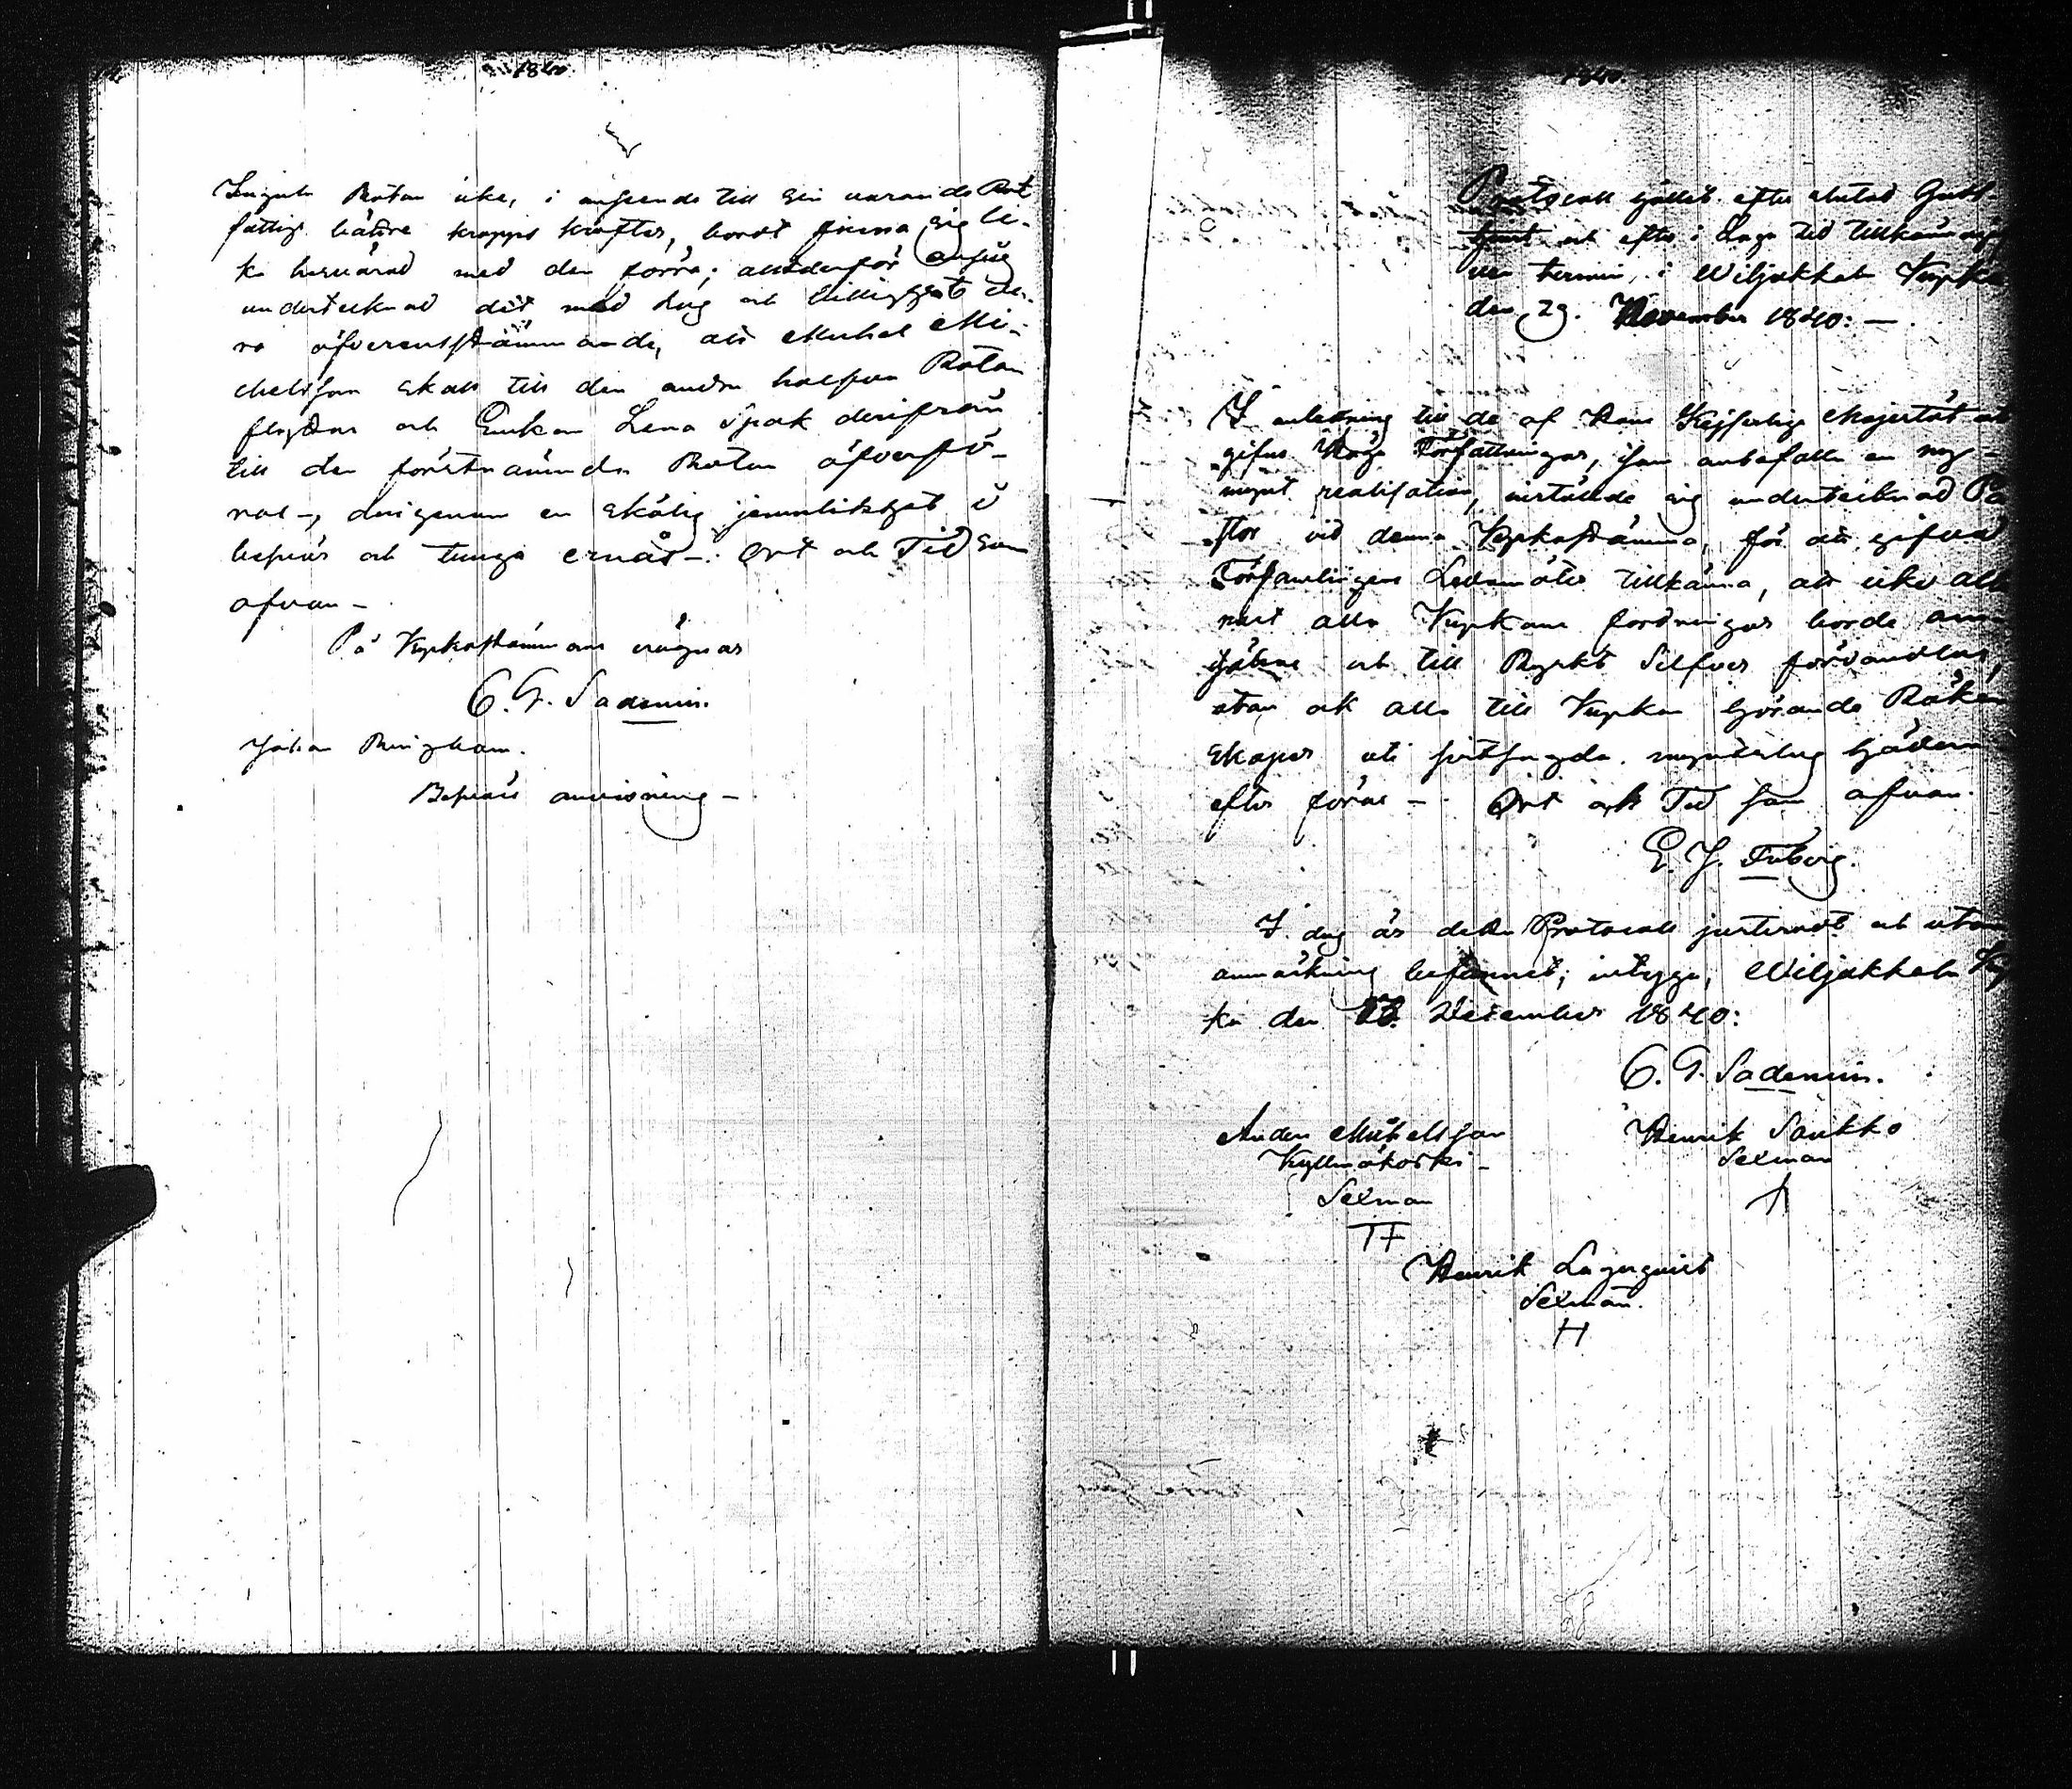 1840
Rotan icke, i anseende till sin varande Rot
fattigs bättre kropps krafter, bordt finna sig li-
ka besvärad med den förra; alltderför ansåg
undertecknad det med Lag och billighet va-
ra öfverensstämmande, att Michel Mi-
chelsson skall till den andra halfva Rotan
flyttas och Enkan Lena Spak derifrån
till den förstnämnda Rotan öfverfö-
ras -, derigenom en skälig jemnlikhet i
besvär och tunga ernås -. Ort och Tid som
ofvan -
På Kyrkostämmans vägnar
C. G. Sadenius.
Johan Ringbom.
Besvärs anvisning -
1840.
Protocoll hållet efter slutad Gudstjenst och efter i Laga Tid tillkännagif-
ven termin, i Wiljakkala Kyrka
den 29. November 1840: -
I anledning till de af Hans Kejserliga Majestät ut
gifna Höga Författningar, som anbefalla en myn-
nings realisation, inställde sig undertecknad Pa
stor vid denna Kyrkostämma, för att gifva
Församlingens Ledamöter tillkänna, att icke alle
nast alla Kyrkans fordringar borde
och till Ryskt Silfver förvandlas,
utan ock alla till Kyrkan hörande Räken
skaper uti sistsagda myntslag hädan
efter föras -. Ort och Tid som ofvan.
E. J. Friberg.
I dag är detta Protocoll justeradt och utan
anmärkning befunnet; intyga, Wiljakkala Kyr
ka den 13. December 1840:
C. G. Sadenius.
Anders Michelsson
Kyllmäkoski -
Sexman
TF
Henrik Saukko
Sexman
Henrik Lagerqvist
Sexman.
H